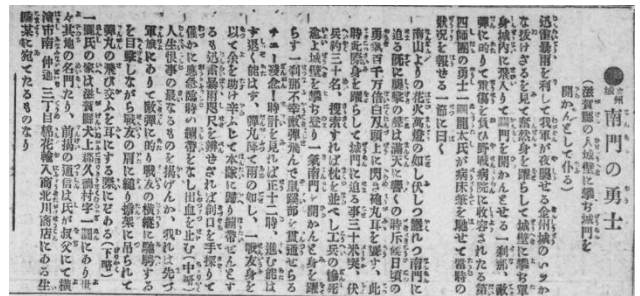 金州城 南門の勇士
(滋賀縣の人城壁に攀ぢ城門を
開かんとして仆る)
迅雷暴雨を利して我軍が夜襲せる金州城のいつか
な拔けざるを見て奮然身を躍らして城壁に攀ぢ單
身城內に飛入りて城門を開かんとせる一刹那、敵
彈に的りて重傷を負ひ野戰病院に收容されたる第
四師團の勇士一圓 太氏が病床筆を馳せて當時の
狀況を報せる一節に曰く
南山よりの花火萬燈の如し伏しつ つ南門に
迫る既に の聲は滿天に響くの時斥候日頃の
勇氣百千万倍 頭上に閃き砲丸耳を聾す、此
時此 身を躍らして城門に迫る事三十米突、伏
兵約三十名、搜索すれば枕を並べし工兵の慘死
上城壁を攀ぢ登り一 南門を開かんと身を躍
らす一刹那不幸敵彈飛んで鼠蹊部を貫通せらる
チエー殘念!時計を見れば正十二時、進む能は
ず退く能はず、彈丸降て雨の如し、一戰友身を
以て余を助け辛ふじて本隊に歸り繃帶なさんとす
るも迅雷暴雨咫尺を辨せざれば創口を手探りて
僅かに應急臨時の繃帶をなし出血を止む(中略)
人生恨事の なるものを揚げんか、我れは先づ
軍旅にありて敵彈に的り戰友の縱橫に馳騁する
を目擊しながら戰友の肩に縋り擔架に吊られて
彈丸の飛び交ふを耳にする際にどゐる(下略)
一圓氏の家は滋賀縣犬上郡久德村字一圓にあり世
々其地の名門たり、前揭の通信は氏が叔父にて橫
濱市南仲通三丁目綿花輸入商北川商店にある生
駒某に宛てたるものなり